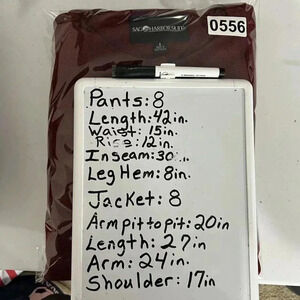 0556
SAG HARBOR SUIT
Pants: 8
Length: 42in.
Waist: 15in.
Rise: 12in.
Inseam: 30
Leg Hem: 8in.
Jacket: 8
Armpit to pit: 20in
Length: 27in
Arm: 24in.
Shoulder: 17in